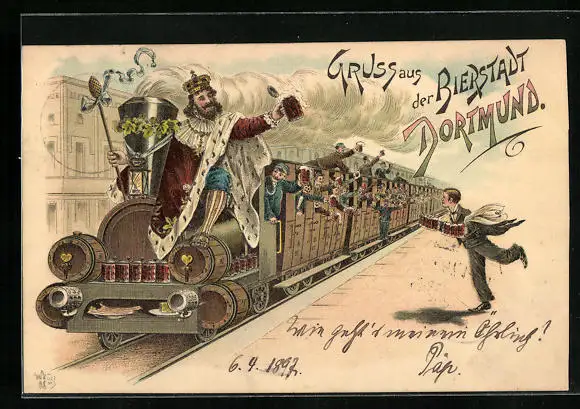 GRUSS aus
der BIERSTADT
DORTMUND.
Wie geht's meinem Öhrlich?
6. 4. 1897.